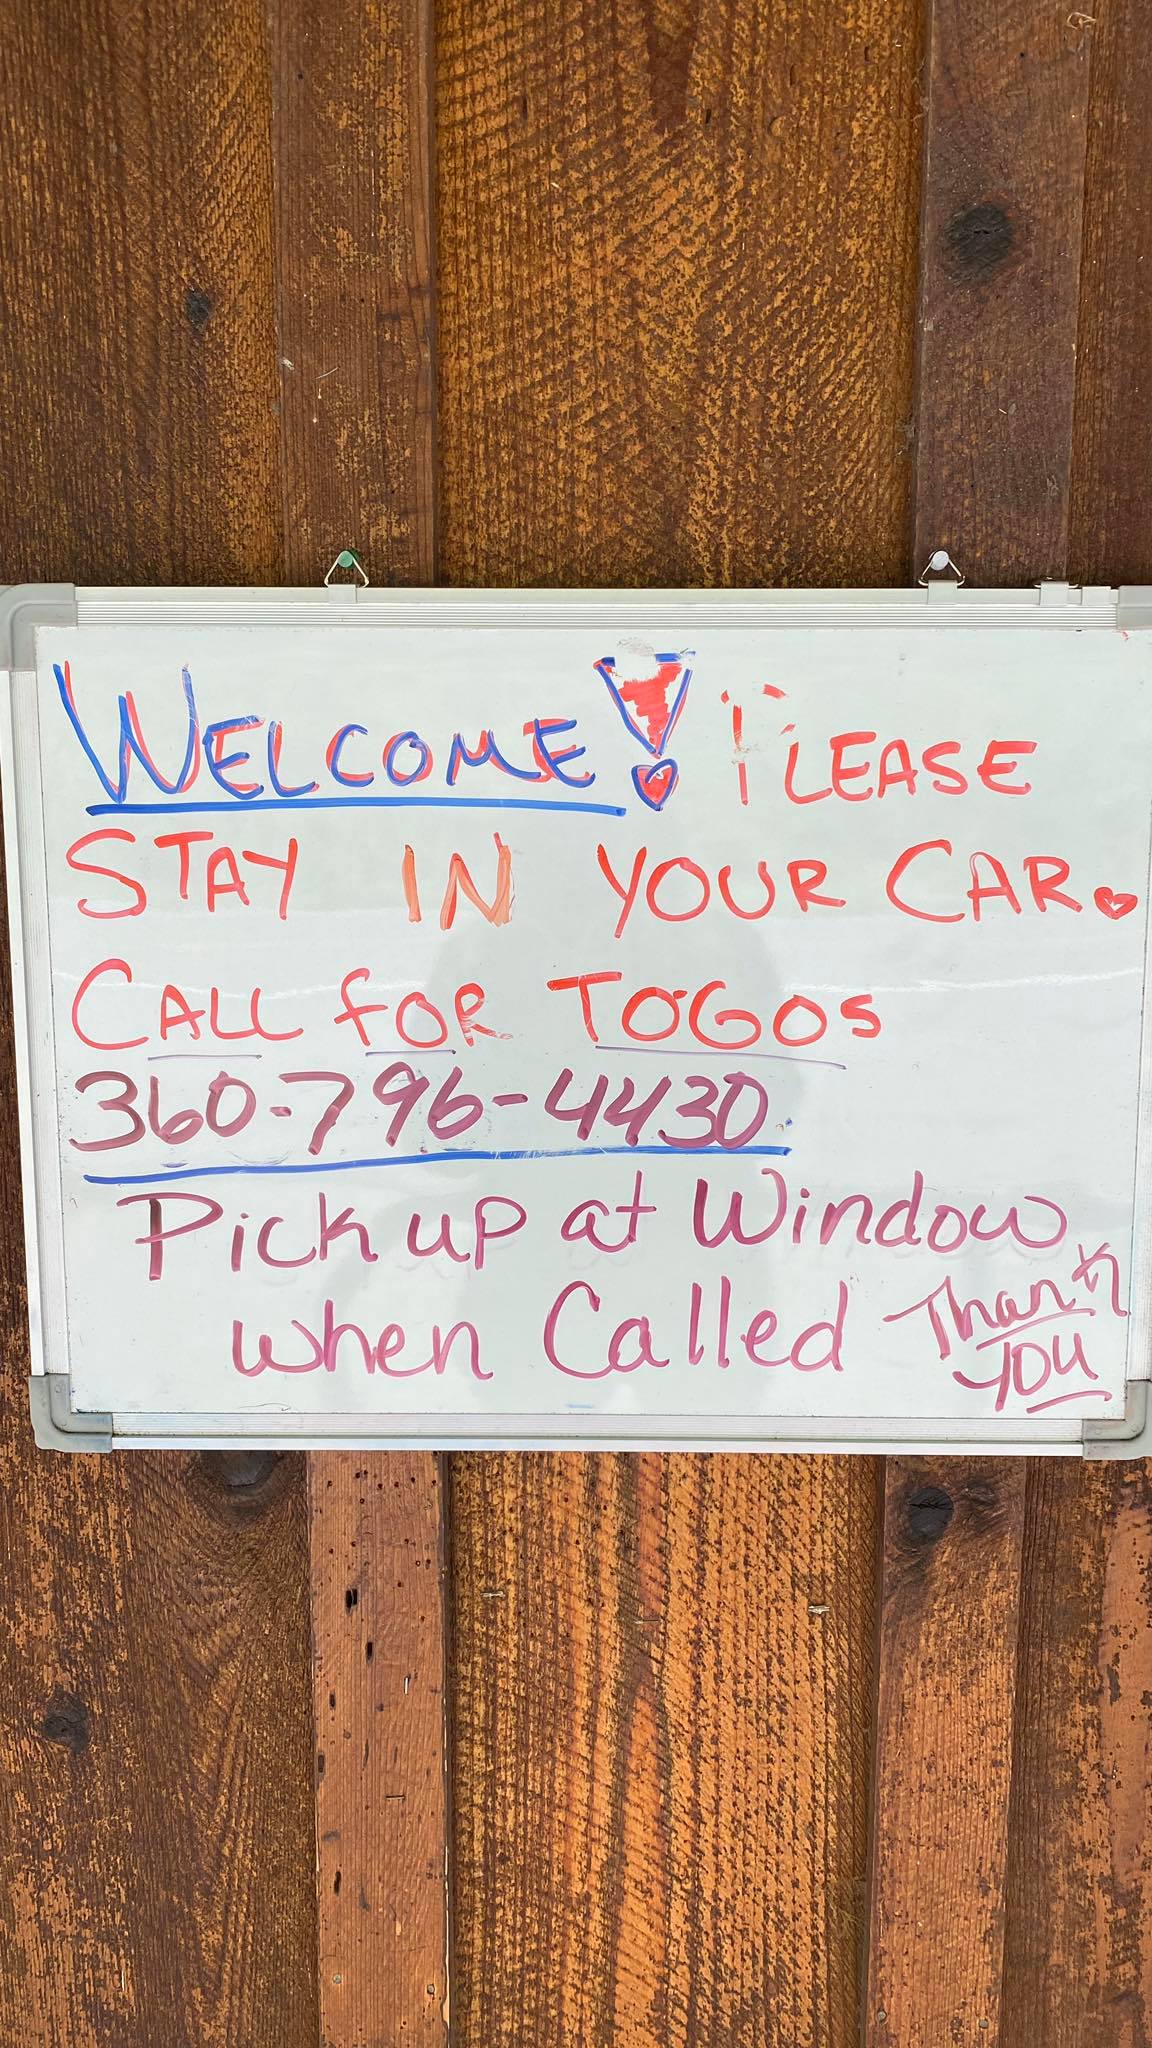 WELCOME! PLEASE
STAY IN YOUR CAR.
CALL FOR TOGOS
360-796-4430
Pick up at Window
when Called Thank
YOU